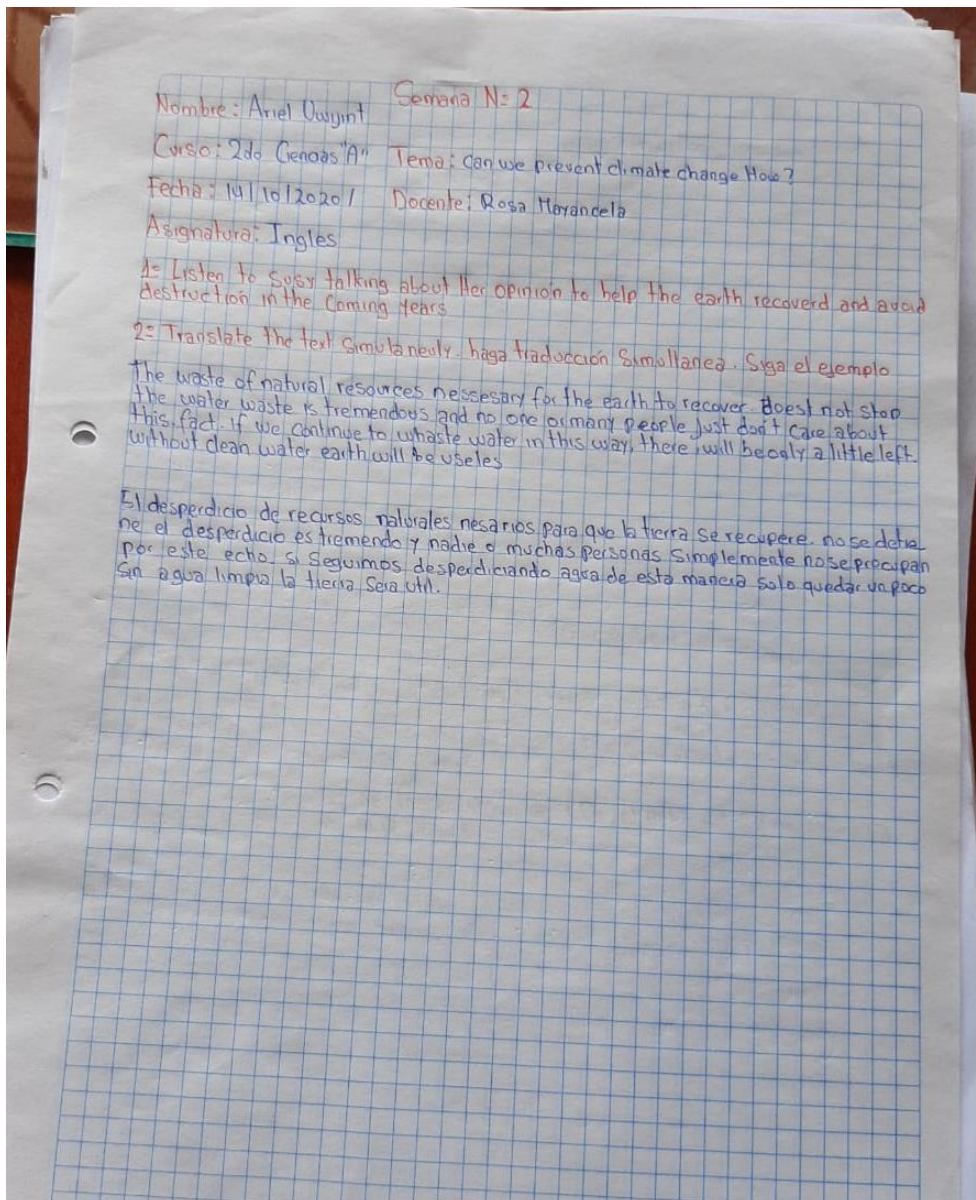 Semana N= 2
Nombre: Ariel
Curso: 2do Ciencias "A" Tema: Can we prevent climate change How?
Fecha: 14/10/2020/ Docente: Rosa Morancela
Asignatura: Ingles
1= Listen to Susy talking about Her opinion to help the earth recoverd and avoid
destruction in the Coming years
2= Translate the text Simulaneuly. haga traducción Simullanea. Siga el ejemplo
The waste of natural resources nessesary for the earth to recover. doest not stop
The water waste is tremendous and no one or many people Just don't care about
this. fact. if we continue to whaste water in this way, there, will be only a little left.
without clean water earth will be useles
El desperdicio de recursos naturales nesarios para que la tierra se recupere. no se detie
ne el desperdicio es tremendo y nadie o muchas personas simplemente no se procupan
por este echo. si Seguimos desperdiciando agua de esta manera solo quedar un poco
Sin agua limpia la tierra Sera util.